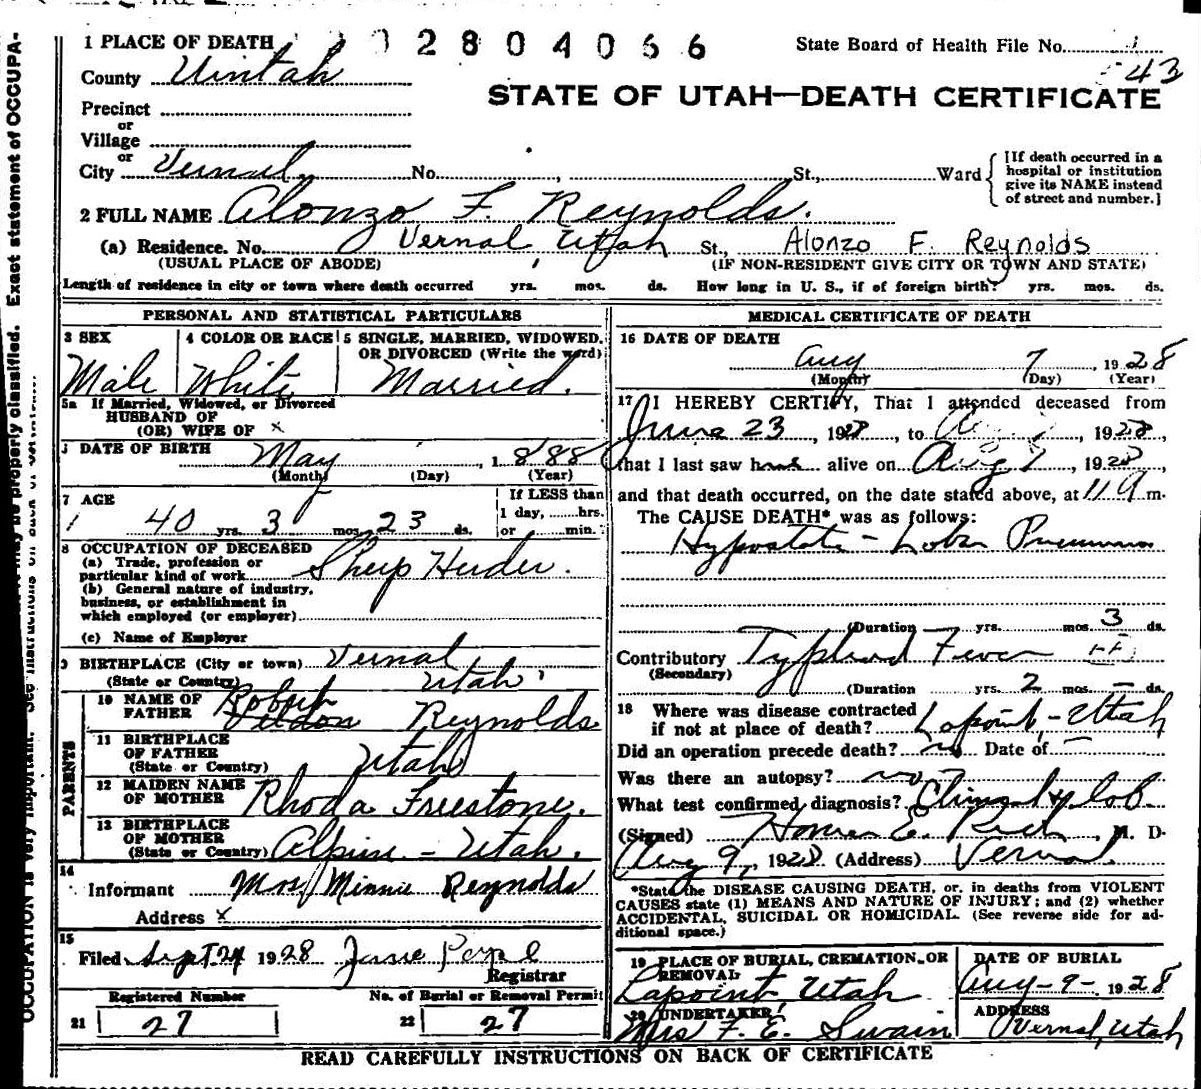 1 PLACE OF DEATH 2804066 State Board of Health File No.
43
County Uintah
STATE OF UTAH—DEATH CERTIFICATE
Precinct
or
Village
or
City Vernal, No. , St., Ward
[If death occurred in a
hospital or institution
give its NAME instead
of street and number.]
2 FULL NAME Alonzo F. Reynolds.
(a) Residence. No. Vernal, Utah St., Alonzo F. Reynolds
(USUAL PLACE OF ABODE) (IF NON-RESIDENT GIVE CITY OR TOWN AND STATE)
Length of residence in city or town where death occurred yrs. mos. ds. How long in U. S., if of foreign birth? yrs. mos. ds.
PERSONAL AND STATISTICAL PARTICULARS
3 SEX 4 COLOR OR RACE 5 SINGLE, MARRIED, WIDOWED,
OR DIVORCED (Write the word)
Male White Married.
5a If Married, Widowed, or Divorced
HUSBAND OF
(OR) WIFE OF x
DATE OF BIRTH May , 1888
(Month) (Day) (Year)
7 AGE If LESS than
1 day, hrs.
40 yrs. 3 mos. 23 ds. or min.
8 OCCUPATION OF DECEASED
(a) Trade, profession or
particular kind of work Sheep Herder.
(b) General nature of industry,
business, or establishment in
which employed (or employer)
(c) Name of Employer
9 BIRTHPLACE (City or town) Vernal
(State or Country) Utah
PARENTS
10 NAME OF
FATHER Robert Reynolds
11 BIRTHPLACE
OF FATHER
(State or Country) Utah
12 MAIDEN NAME
OF MOTHER Rhoda Freestone.
13 BIRTHPLACE
OF MOTHER
(State or Country) Alpine - Utah.
14
Informant Mrs Minnie Reynolds
Address x
15
Filed Sept 24 1928
Registrar
Registered Number No. of Burial or Removal Permit
21 27 22 27
MEDICAL CERTIFICATE OF DEATH
16 DATE OF DEATH
Aug 7, 1928
(Month) (Day) (Year)
17 I HEREBY CERTIFY, That I attended deceased from
June 23, 1928, to , 1928,
that I last saw him alive on Aug 7, 1928
and that death occurred, on the date stated above, at m.
The CAUSE DEATH* was as follows:
Lobar
(Duration yrs. mos. 3 ds.
Contributory Typhoid Fever
(Secondary)
(Duration yrs. 2 mos. - ds.
18 Where was disease contracted
if not at place of death? Lapoint, - Utah
Did an operation precede death? no Date of -
Was there an autopsy? no
What test confirmed diagnosis?
(Signed) Homer E. Rich, M. D.
Aug 9, 1928 (Address) Vernal.
*State the DISEASE CAUSING DEATH, or, in deaths from VIOLENT
CAUSES state (1) MEANS AND NATURE OF INJURY; and (2) whether
ACCIDENTAL, SUICIDAL OR HOMICIDAL. (See reverse side for ad-
ditional space.)
19 PLACE OF BURIAL, CREMATION, OR
REMOVAL
Lapoint, Utah
DATE OF BURIAL
Aug-9-1928
20 UNDERTAKER
Mrs F. E. Swain
ADDRESS
Vernal, Utah
READ CAREFULLY INSTRUCTIONS ON BACK OF CERTIFICATE
Exact statement of OCCUPA-
may be properly classified.
OCCUPATION is very important.